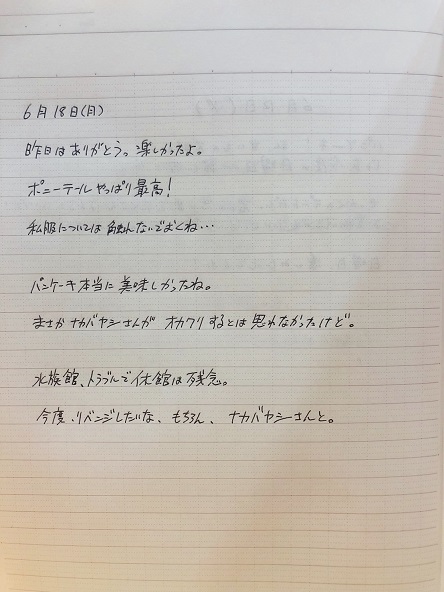 6月18日(月)
昨日はありがとう。楽しかったよ。
ポニーテールやっぱり最高!
私服については触れないでおくね…
パンケーキ本当に美味しかったね。
まさかナカバヤシさんがオカワリするとは思わなかったけど。
水族館、トラブルで休館は残念。
今度、リベンジしたいな、もちろん、ナカバヤシさんと。